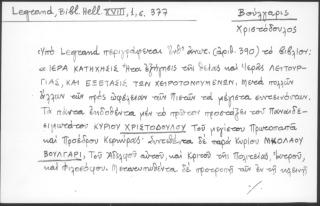 Legrand, Bibl. Hell. XVIII, 1, σ. 377
Βούλγαρις
Χριστόδουλος
Ὑπὸ Legrand περιγράφεται (ἀριθ. 390) τὸ βιβλίον:
« ΙΕΡΑ ΚΑΤΗΧΗΣΙΣ Ἤτοι ἐξήγησις τῆς Θείας καὶ Ἱερᾶς ΛΕΙΤΟΥΡ-
ΓΙΑΣ, ΚΑΙ ΕΞΕΤΑΣΙΣ ΤΩΝ ΧΕΙΡΟΤΟΝΟΥΜΕΝΩΝ, Μετὰ πολλῶν
ἄλλων τῶν πρὸς ὠφέλειαν τῶν Πιστῶν τὰ μέγιστα συντεινόντων.
Τὰ πάντα ἐκδοθέντα μὲν τὸ πρῶτον προστάξει τοῦ Παναιδε-
σιμωτάτου ΚΥΡΙΟΥ ΧΡΙΣΤΟΔΟΥΛΟΥ Τοῦ μεγίστου Πρωτοπαπᾶ
καὶ Προέδρου Κερκύρας· Συντεθέντα δὲ παρὰ Κυρίου ΝΙΚΟΛΑΟΥ
ΒΟΥΛΓΑΡΙ, Τοῦ Ἀδελφοῦ αὐτοῦ, καὶ Κριτοῦ τῆς Πολιτείας Ἰατροῦ,
καὶ Φιλοσόφου. Μετατυπωθέντα δὲ προτροπῇ τῶν ἐν τῇ κλεινῇ